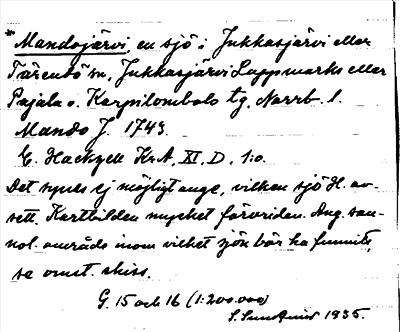 * Mandojärvi, en sjö i Jukkasjärvi eller
Tärendö sn, Jukkasjärvi Lappmarks eller
Pajala o. Korpilombolo tg, Norrb. l.
Mando J. 1743.
E. Hackzell KrA, XI. D, 1:o.
Det synes ej möjligt ange, vilken sjö H. av-
sett. Kartbilden mycket förvriden. Ang. san-
nol. område inom vilket sjön bör ha funnits,
se omst. skiss.
G. 15 och 16 (1:200.000)
S. 1935.